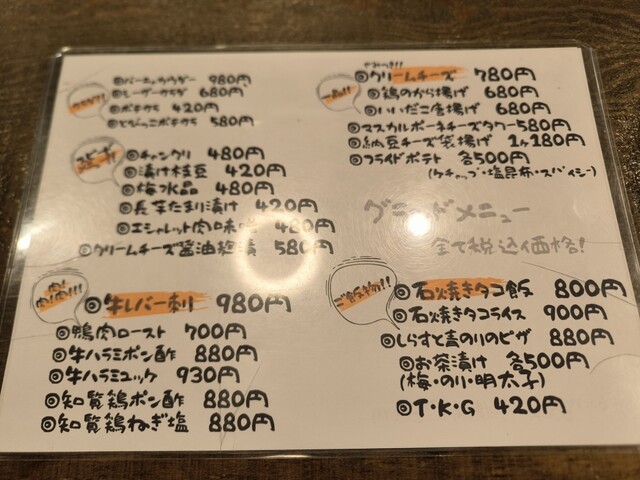 ◎バーニャカウダー 980円
◎シーザーサラダ 680円
◎ポテサラ 420円
◎とびっこポテサラ 580円
スピードメニュー!!
◎チャンクリ 480円
◎漬け枝豆 420円
◎梅水晶 480円
◎長芋たまり漬け 420円
◎エシャレット肉味噌 480円
◎クリームチーズ醤油麹漬 580円
肉!肉!肉!!!
◎牛レバー刺り 980円
◎鴨肉ロースト 700円
◎牛ハラミポン酢 880円
◎牛ハラミユッケ 930円
◎知覧鶏ポン酢 880円
◎知覧鶏ねぎ塩 880円
一品!!
やみつき!!
◎クリームチーズ 780円
◎鶏のから揚げ 680円
◎いいだこ唐揚げ 680円
◎マスカルポーネチーズタワー 580円
◎納豆チーズ袋揚げ 1ヶ280円
◎フライドポテト 各500円
(ケチャップ・塩昆布・スパイシー)
グランドメニュー
全て税込価格!
ご飯物!!
◎石焼きタコ飯 800円
◎石焼きタコライス 900円
◎しらすと青のりのピザ 880円
◎お茶漬け 各500円
(梅・のり・明太子)
◎T・K・G 420円